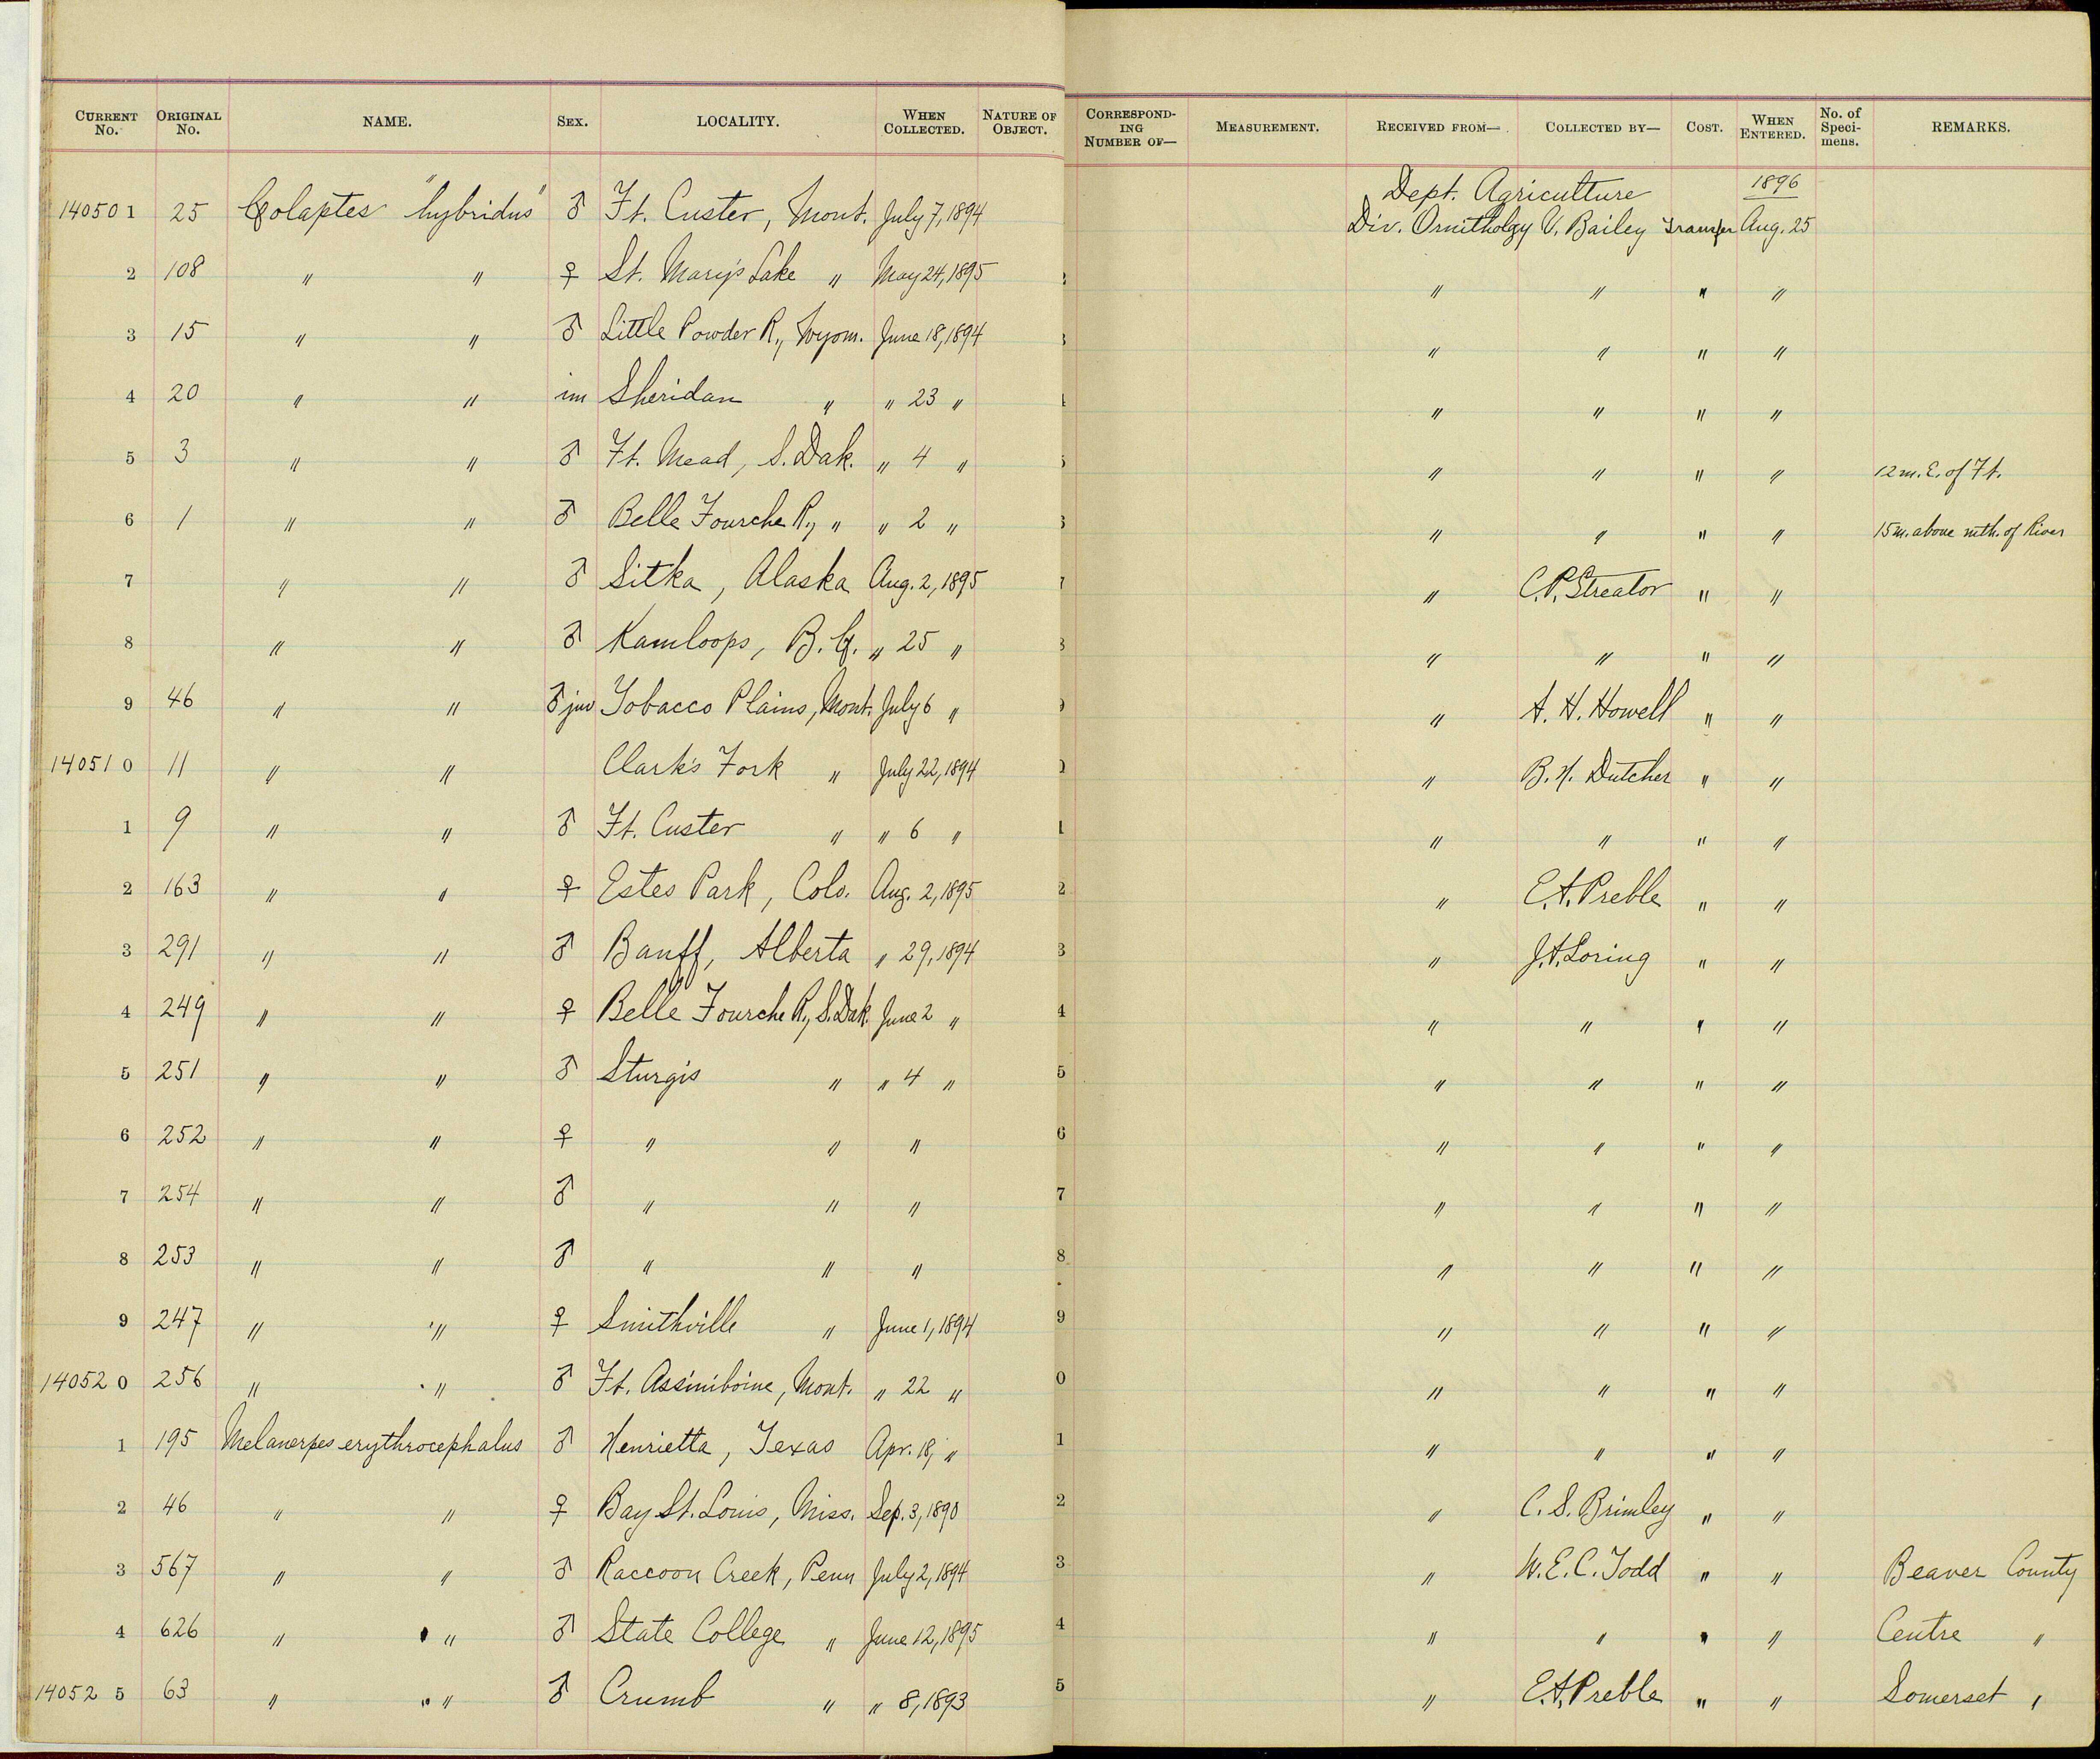 CURRENT No. ORIGINAL No. NAME. SEX. LOCALITY. WHEN COLLECTED. NATURE OF OBJECT. CORRESPONDING NUMBER OF— MEASUREMENT. RECEIVED FROM— COLLECTED BY— COST. WHEN ENTERED. No. of Specimens. REMARKS.
Dept. Agriculture 1896
140501 25 Colaptes "hybridus" ♂ Ft. Custer, Mont. July 7, 1894 Div. Ornithology V. Bailey Transfer Aug. 25
2 108 " " ♀ St. Mary's Lake " May 24, 1895 " " " "
3 15 " " ♂ Little Powder R., Wyom. June 18, 1894 " " " "
4 20 " " im Sheridan " " 23 " " " " "
5 3 " " ♂ Ft. Mead, S. Dak. " 4 " " " " " 12 m. E. of Ft.
6 1 " " ♂ Belle Fourche R., " " 2 " " " " " 15 m. above mth. of River
7 " " ♂ Sitka, Alaska Aug. 2, 1895 " C. P. Streator " "
8 " " ♂ Kamloops, B. C. " 25 " " " " "
9 46 " " ♂ juv Tobacco Plains, Mont. July 6 " " A. H. Howell " "
140510 11 " " Clark's Fork " July 22, 1894 " B. H. Dutcher " "
1 9 " " ♂ Ft. Custer " " 6 " " " " "
2 163 " " ♀ Estes Park, Colo. Aug. 2, 1895 2 " E. A. Preble " "
3 291 " " ♂ Banff, Alberta " 29, 1894 3 " J. A. Loring " "
4 249 " " ♀ Belle Fourche R., S. Dak. June 2 " 4 " " " "
5 251 " " ♂ Sturgis " " 4 " 5 " " " "
6 252 " " ♀ " " " 6 " " " "
7 254 " " ♂ " " " 7 " " " "
8 253 " " ♂ " " " 8 " " " "
9 247 " " ♀ Smithville " June 1, 1894 9 " " " "
140520 256 " " ♂ Ft. Assiniboine, Mont. " 22 " 0 " " " "
1 195 Melanerpes erythrocephalus ♂ Henrietta, Texas Apr. 18, " 1 " " " "
2 46 " " ♀ Bay St. Louis, Miss. Sep. 3, 1890 2 " C. S. Brimley " "
3 567 " " ♂ Raccoon Creek, Penn July 2, 1894 3 " W. E. C. Todd " " Beaver County
4 626 " " ♂ State College " June 12, 1895 4 " " " " Centre "
140525 63 " " ♂ Crumb " " 8, 1893 5 " E. A. Preble " " Somerset "